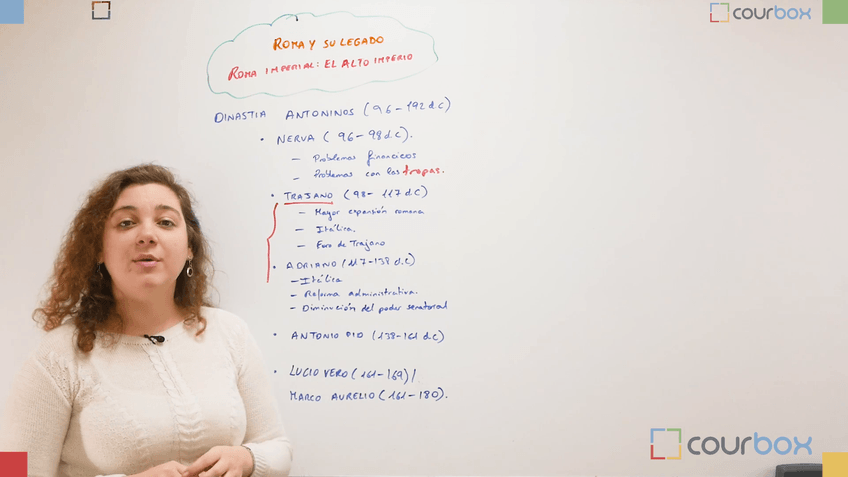 courbox
ROMA Y SU LEGADO
ROMA IMPERIAL: EL ALTO IMPERIO
DINASTIA ANTONINOS (96-192 d.C)
• NERVA (96-98 d.C).
- Problemas financieros
- Problemas con las tropas.
• TRAJANO (98-117 d.C)
- Mayor expansión romana
- Itálica.
- Foro de Trajano
• ADRIANO (117-138 d.C)
- Itálica
- Reforma administrativa.
- Diminución del poder senatorial
• ANTONIO PIO (138-161 d.C)
• LUCIO VERO (161-169) /
MARCO AURELIO (161-180).
courbox